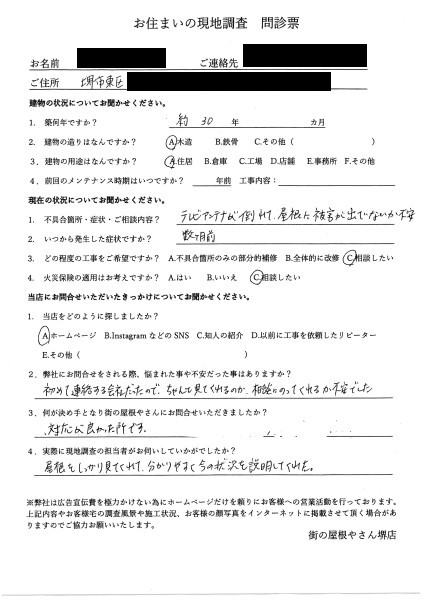 お住まいの現地調査 問診票
お名前 ご連絡先
ご住所 堺市東区
建物の状況についてお聞かせください。
1. 築何年ですか? 約 30 年 カ月
2. 建物の造りはなんですか? A.木造 B.鉄骨 C.その他( )
3. 建物の用途はなんですか? A.住居 B.倉庫 C.工場 D.店舗 E.事務所 F.その他
4. 前回のメンテナンス時期はいつですか? 年前 工事内容:
現在の状況についてお聞かせください。
1. 不具合箇所・症状・ご相談内容? テレビアンテナが倒れて、屋根に被害が出てないか不安
2. いつから発生した症状ですか? 数ヶ月前
3. どの程度の工事をご希望ですか? A.不具合箇所のみの部分的補修 B.全体的に改修 C.相談したい
4. 火災保険の適用はお考えですか? A.はい B.いいえ C.相談したい
当店にお問合せいただいたきっかけについてお聞かせください。
1. 当店をどのように探しましたか?
A.ホームページ B.Instagram などの SNS C.知人の紹介 D.以前に工事を依頼したリピーター
E.その他( )
2. 弊社にお問合せをされる際、悩まれた事や不安だった事はありますか?
初めて連絡する会社だったので、ちゃんと見てくれるのか、相談にのってくれるか不安でした
3. 何が決め手となり街の屋根やさんにお問合せいただきましたか?
対応が良かった所です。
4. 実際に現地調査の担当者がお伺いしていかがでしたか?
屋根をしっかり見てくれて、分かりやすく今の状況を説明してくれた。
※弊社は広告宣伝費を極力かけない為にホームページだけを頼りにお客様への営業活動を行っております。
上記内容やお客様宅の調査風景や施工状況、お客様の顔写真をインターネットに掲載させて頂く場合があ
りますのでご協力お願いいたします。
街の屋根やさん堺店